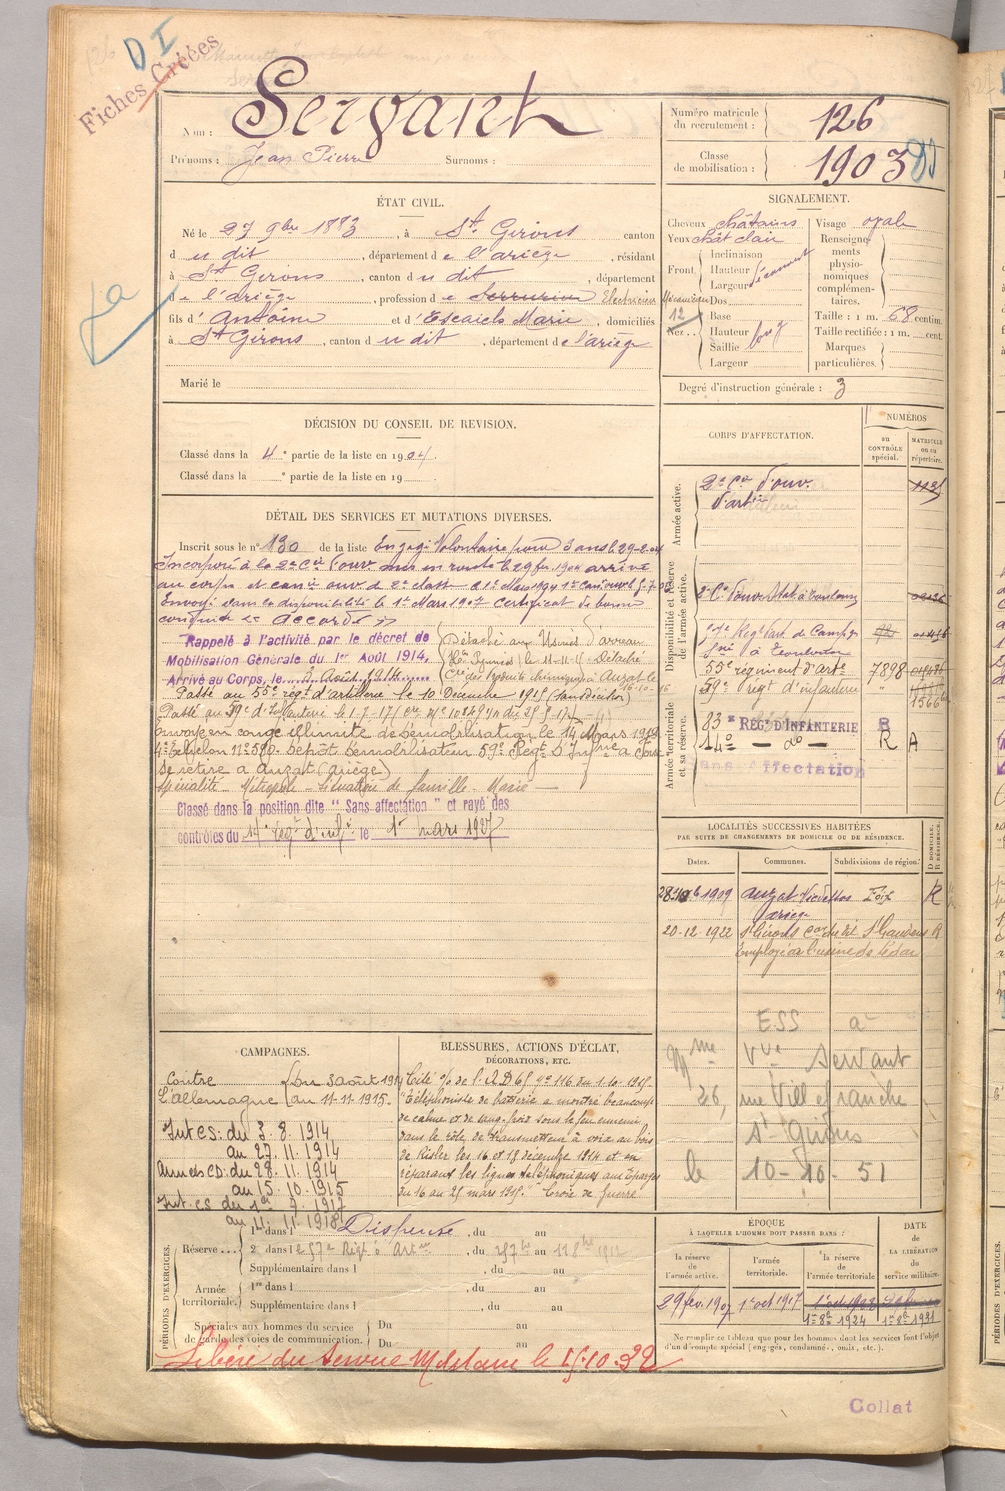 126
D I
Fiches Créées
Nom : Servant
Prénoms : Jean Pierre Surnoms :
Numéro matricule du recrutement : 126
Classe de mobilisation : 1903
ÉTAT CIVIL.
Né le 27 9bre 1883, à St Girons canton
d u dit, département de l'ariège, résidant
à St Girons, canton d u dit, département
de l'ariège, profession de Serrurier Electricien Mécanicien
fils d' Antoine et d' Escaich Marie, domiciliés
à St Girons, canton d u dit, département de l'ariège
Marié le
SIGNALEMENT.
Cheveux châtains Visage ovale
Yeux chât clair
Front Inclinaison Hauteur Largeur
Nez Dos Base Hauteur Saillie Largeur
12
Renseignements physionomiques complémentaires.
Taille : 1 m. 68 centim.
Taille rectifiée : 1 m. cent.
Marques particulières.
Degré d'instruction générale : 3
DÉCISION DU CONSEIL DE REVISION.
Classé dans la 4e partie de la liste en 1904.
Classé dans la e partie de la liste en 19
DÉTAIL DES SERVICES ET MUTATIONS DIVERSES.
Inscrit sous le n° 130 de la liste Engagé Volontaire pour 3 ans le 29-2-04
Incorporé à la 2e Cie d'ouv mis en route le 29 fev 1904 arrivé
au corps et can. ouv. d 2e classe
Envoyé dans la disponibilité le 1er Mars 1907 certificat de bonne
conduite "Accordé"
Rappelé à l'activité par le décret de
Mobilisation Générale du 1er Août 1914.
Arrivé au Corps, le 3 Août 1914
Détaché aux Usines d'
le 11-11-15 Détaché
Cie des produits chimiques à Auzat le
10-10-16
Passé au 55e régt d'artillerie le 10 Décembre 1915
Passé au 59e d'Infanterie le 1-7-17
Envoyé en congé illimité de démobilisation le 14 Mars 1919
4e échelon n° 580 Dépôt démobilisateur 59e Régt d'Infrie à Foix
Se retire à Auzat (Ariège)
Spécialité Métropole Situation de famille Marié
Classé dans la position dite "Sans affectation" et rayé des
contrôles du 14e régt d'infie le 1er mars 1927
CORPS D'AFFECTATION.
NUMÉROS
au CONTRÔLE spécial.
MATRICULE ou au répertoire.
Armée active.
2e Cie d'ouv. d'artie
Disponibilité et réserve de l'armée active.
2e Cie d'ouv d'art à Toulouse
55e régiment d'arte 7898
59e régt d'infanterie " 1566
Armée territoriale et sa réserve.
83e RÉGT D'INFANTERIE B
14e — do — R A
Sans Affectation
LOCALITÉS SUCCESSIVES HABITÉES
PAR SUITE DE CHANGEMENTS DE DOMICILE OU DE RÉSIDENCE.
Dates. Communes. Subdivisions de région. D DOMICILE, R RÉSIDENCE.
1909 Auzat Vicdessos Foix R
Ariège
20-12-1922 St Girons Con du dit St Gaudens R
Employé à l'usine de Lédar
ESS a
Mme Vve Servant
26, rue Villefranche
St Girons
le 10-10-51
CAMPAGNES.
Contre l'Allemagne du 3 août 1914 au 11-11-1915.
Int CS: du 3.8.1914
au 27.11.1914
Armées CD: du 28.11.1914
au 15.10.1915
Int. CS du 1er 7 1917
au 11.11.1918
BLESSURES, ACTIONS D'ÉCLAT,
DÉCORATIONS, ETC.
Cité % de l'A D 65 n° 116 du 1.10.1915.
"Téléphoniste de batterie a montré beaucoup
de calme et de sang froid sous le feu ennemi,
dans le rôle de transmetteur à voix au bois
de Risler les 16 et 18 décembre 1914 et en
réparant les lignes téléphoniques aux Eparges
du 16 au 25 mars 1915." Croix de guerre
PÉRIODES D'EXERCICES.
Réserve 1re dans l Dispensé, du au
2e dans l e 57e Régt d'Artie, du au
Supplémentaire dans l , du au
Armée territoriale. 1re dans l , du au
Supplémentaire dans l , du au
Spéciales aux hommes du service de garde des voies de communication. Du au
Du au
Libéré du Service Militaire le 15-10-32
ÉPOQUE
À LAQUELLE L'HOMME DOIT PASSER DANS :
la réserve de l'armée active. l'armée territoriale. la réserve de l'armée territoriale
DATE DE LA LIBÉRATION du service militaire.
29 fev. 1907 1er oct 1917
1er 8e 1924 1er 8e 1931
Ne remplir ce tableau que pour les hommes dont les services font l'objet
d'un décompte spécial (engagés, condamnés, omis, etc.).
Collat
PÉRIODES D'EXERCICES.